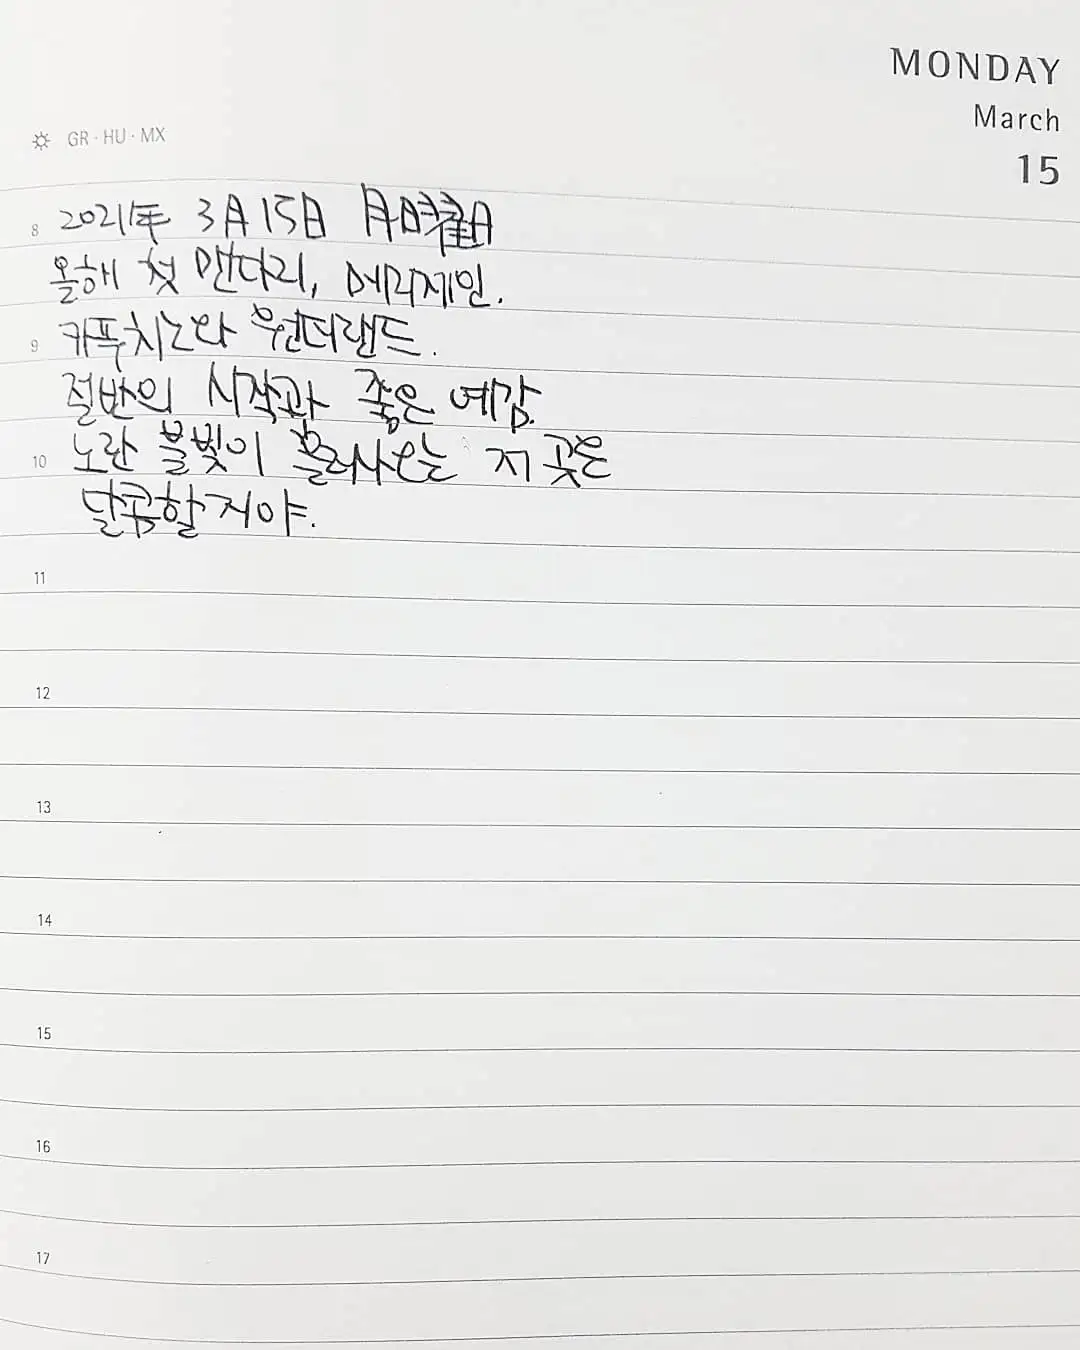 MONDAY
March
15
GR · HU · MX
8 2021年 3月 15日 月曜日
올해 첫 만다리, 메리제인.
9 카푸치노와 원더랜드.
절반의 시작과 좋은 예감.
10 노란 불빛이 흘러나오는 저 곳은
달콤할 거야.
11
12
13
14
15
16
17